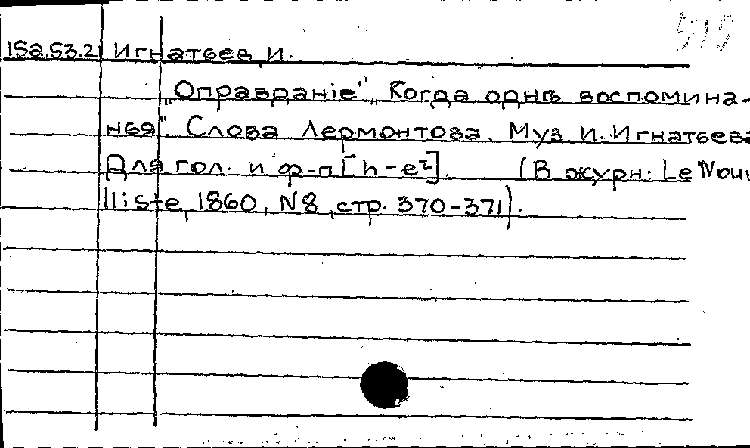 15а.53.2 Игнатьев, И.
„Оправданіе" „Когда однѣ воспомина-
нья". Слова Лермонтова. Муз И. Игнатьева
Для гол. и ф-п [h-e²]. (В журн: Le Nouv
lliste, 1860, N8, стр. 370-371).